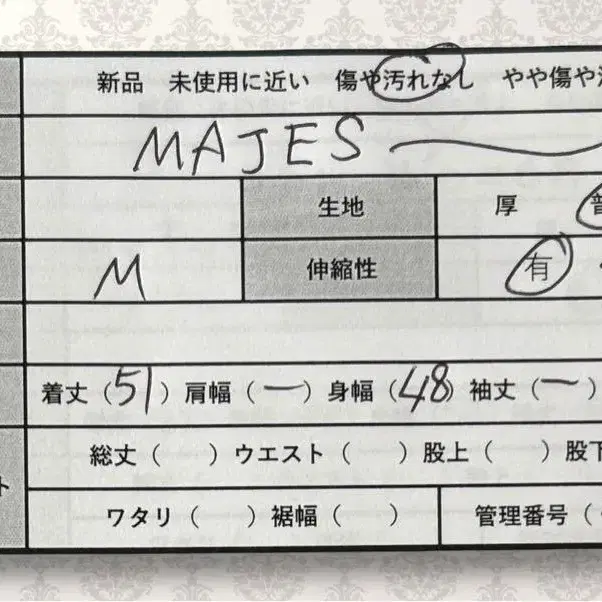 新品 未使用に近い 傷や汚れなし やや傷や
MAJES
生地 厚
M 伸縮性 有
着丈（51）肩幅（ー）身幅（48）袖丈（ー）
ト
総丈（ ）ウエスト（ ）股上（ ）股下
ワタリ（ ）裾幅（ ） 管理番号（